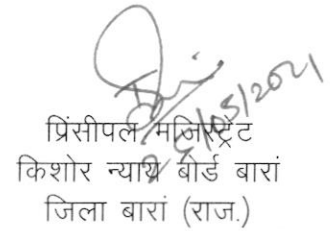 26/05/2021
प्रिंसीपल मजिस्ट्रेट
किशोर न्याय बोर्ड बारां
जिला बारां (राज.)